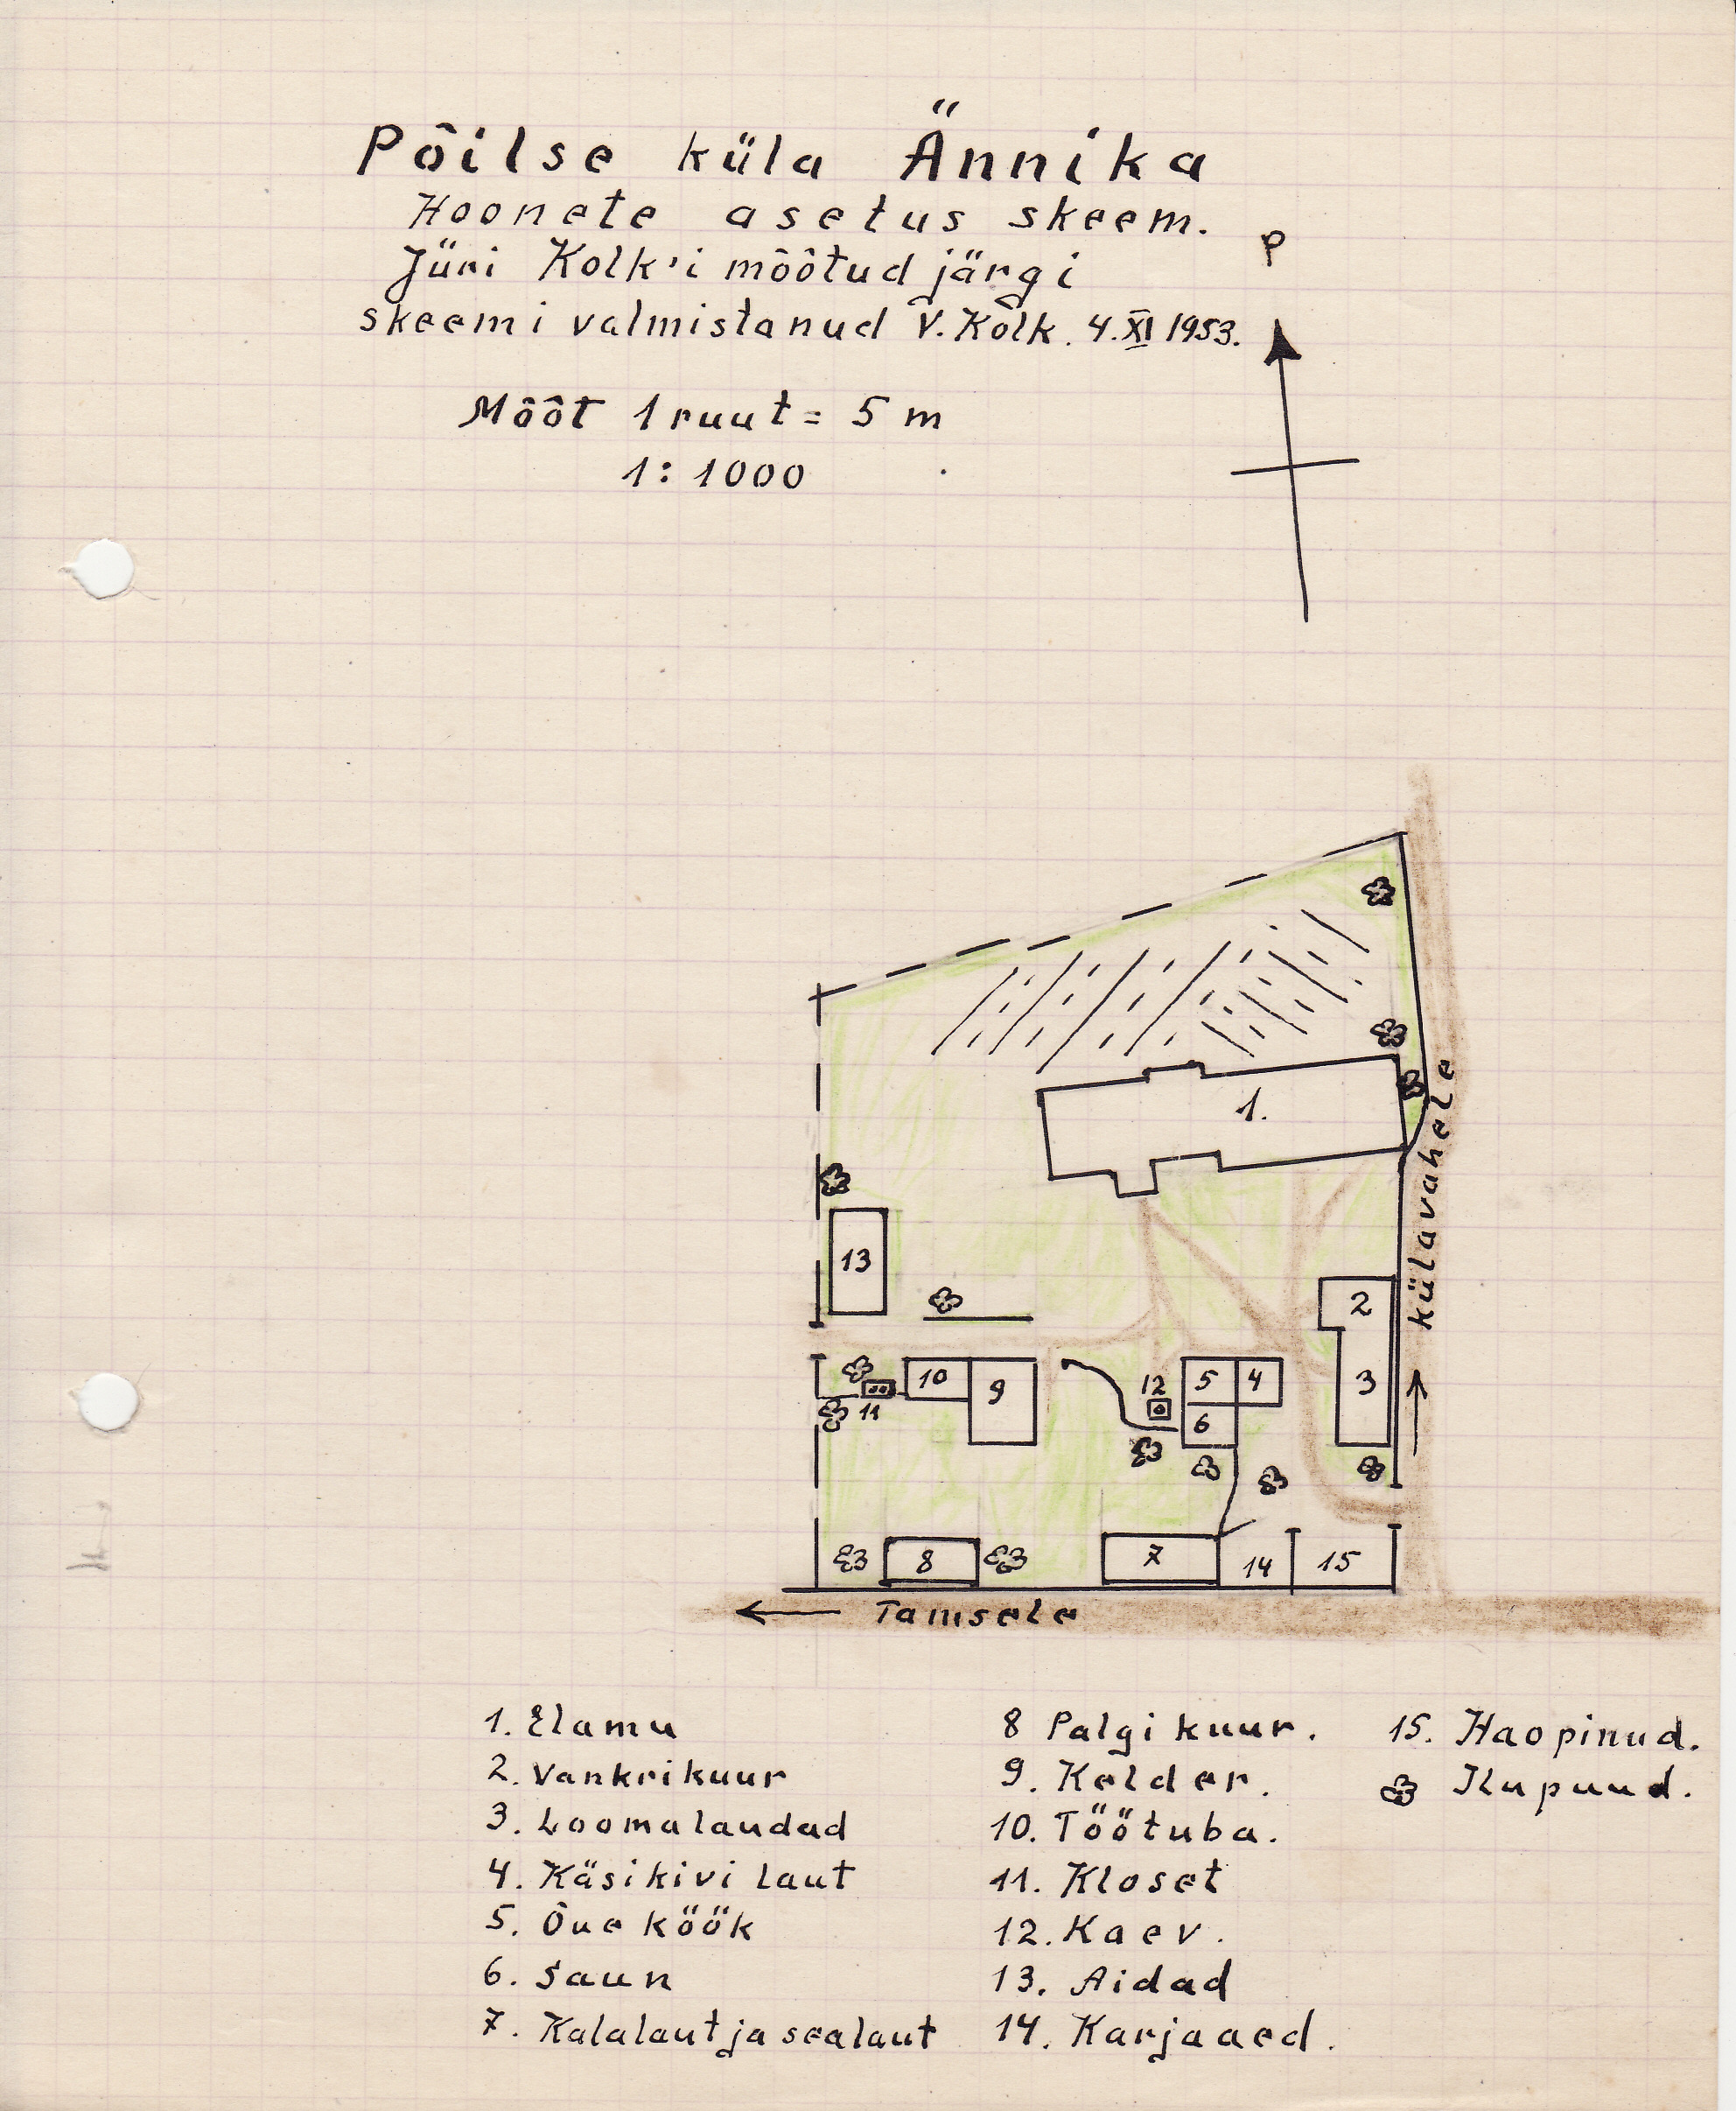 Põilse küla Ännika
Hoonete asetus skeem.
Jüri Kolk'i mõõtud järgi
skeemi valmistanud V. Kolk. 4. XI 1953.
P
Mõõt 1 ruut = 5 m
1:1000
1.
külavahele
13
2
10
9
12
5
4
3
11
6
8
7
14
15
Tamsele
1. Elamu
2. Vankrikuur
3. Loomalaudad
4. Käsikivi laut
5. Õue köök
6. Saun
7. Kalalaut ja sealaut
8 Palgi kuur.
9. Kelder.
10. Töötuba.
11. Kloset
12. Kaev.
13. Aidad
14. Karjaaed.
15. Haopinud.
Ilupuud.